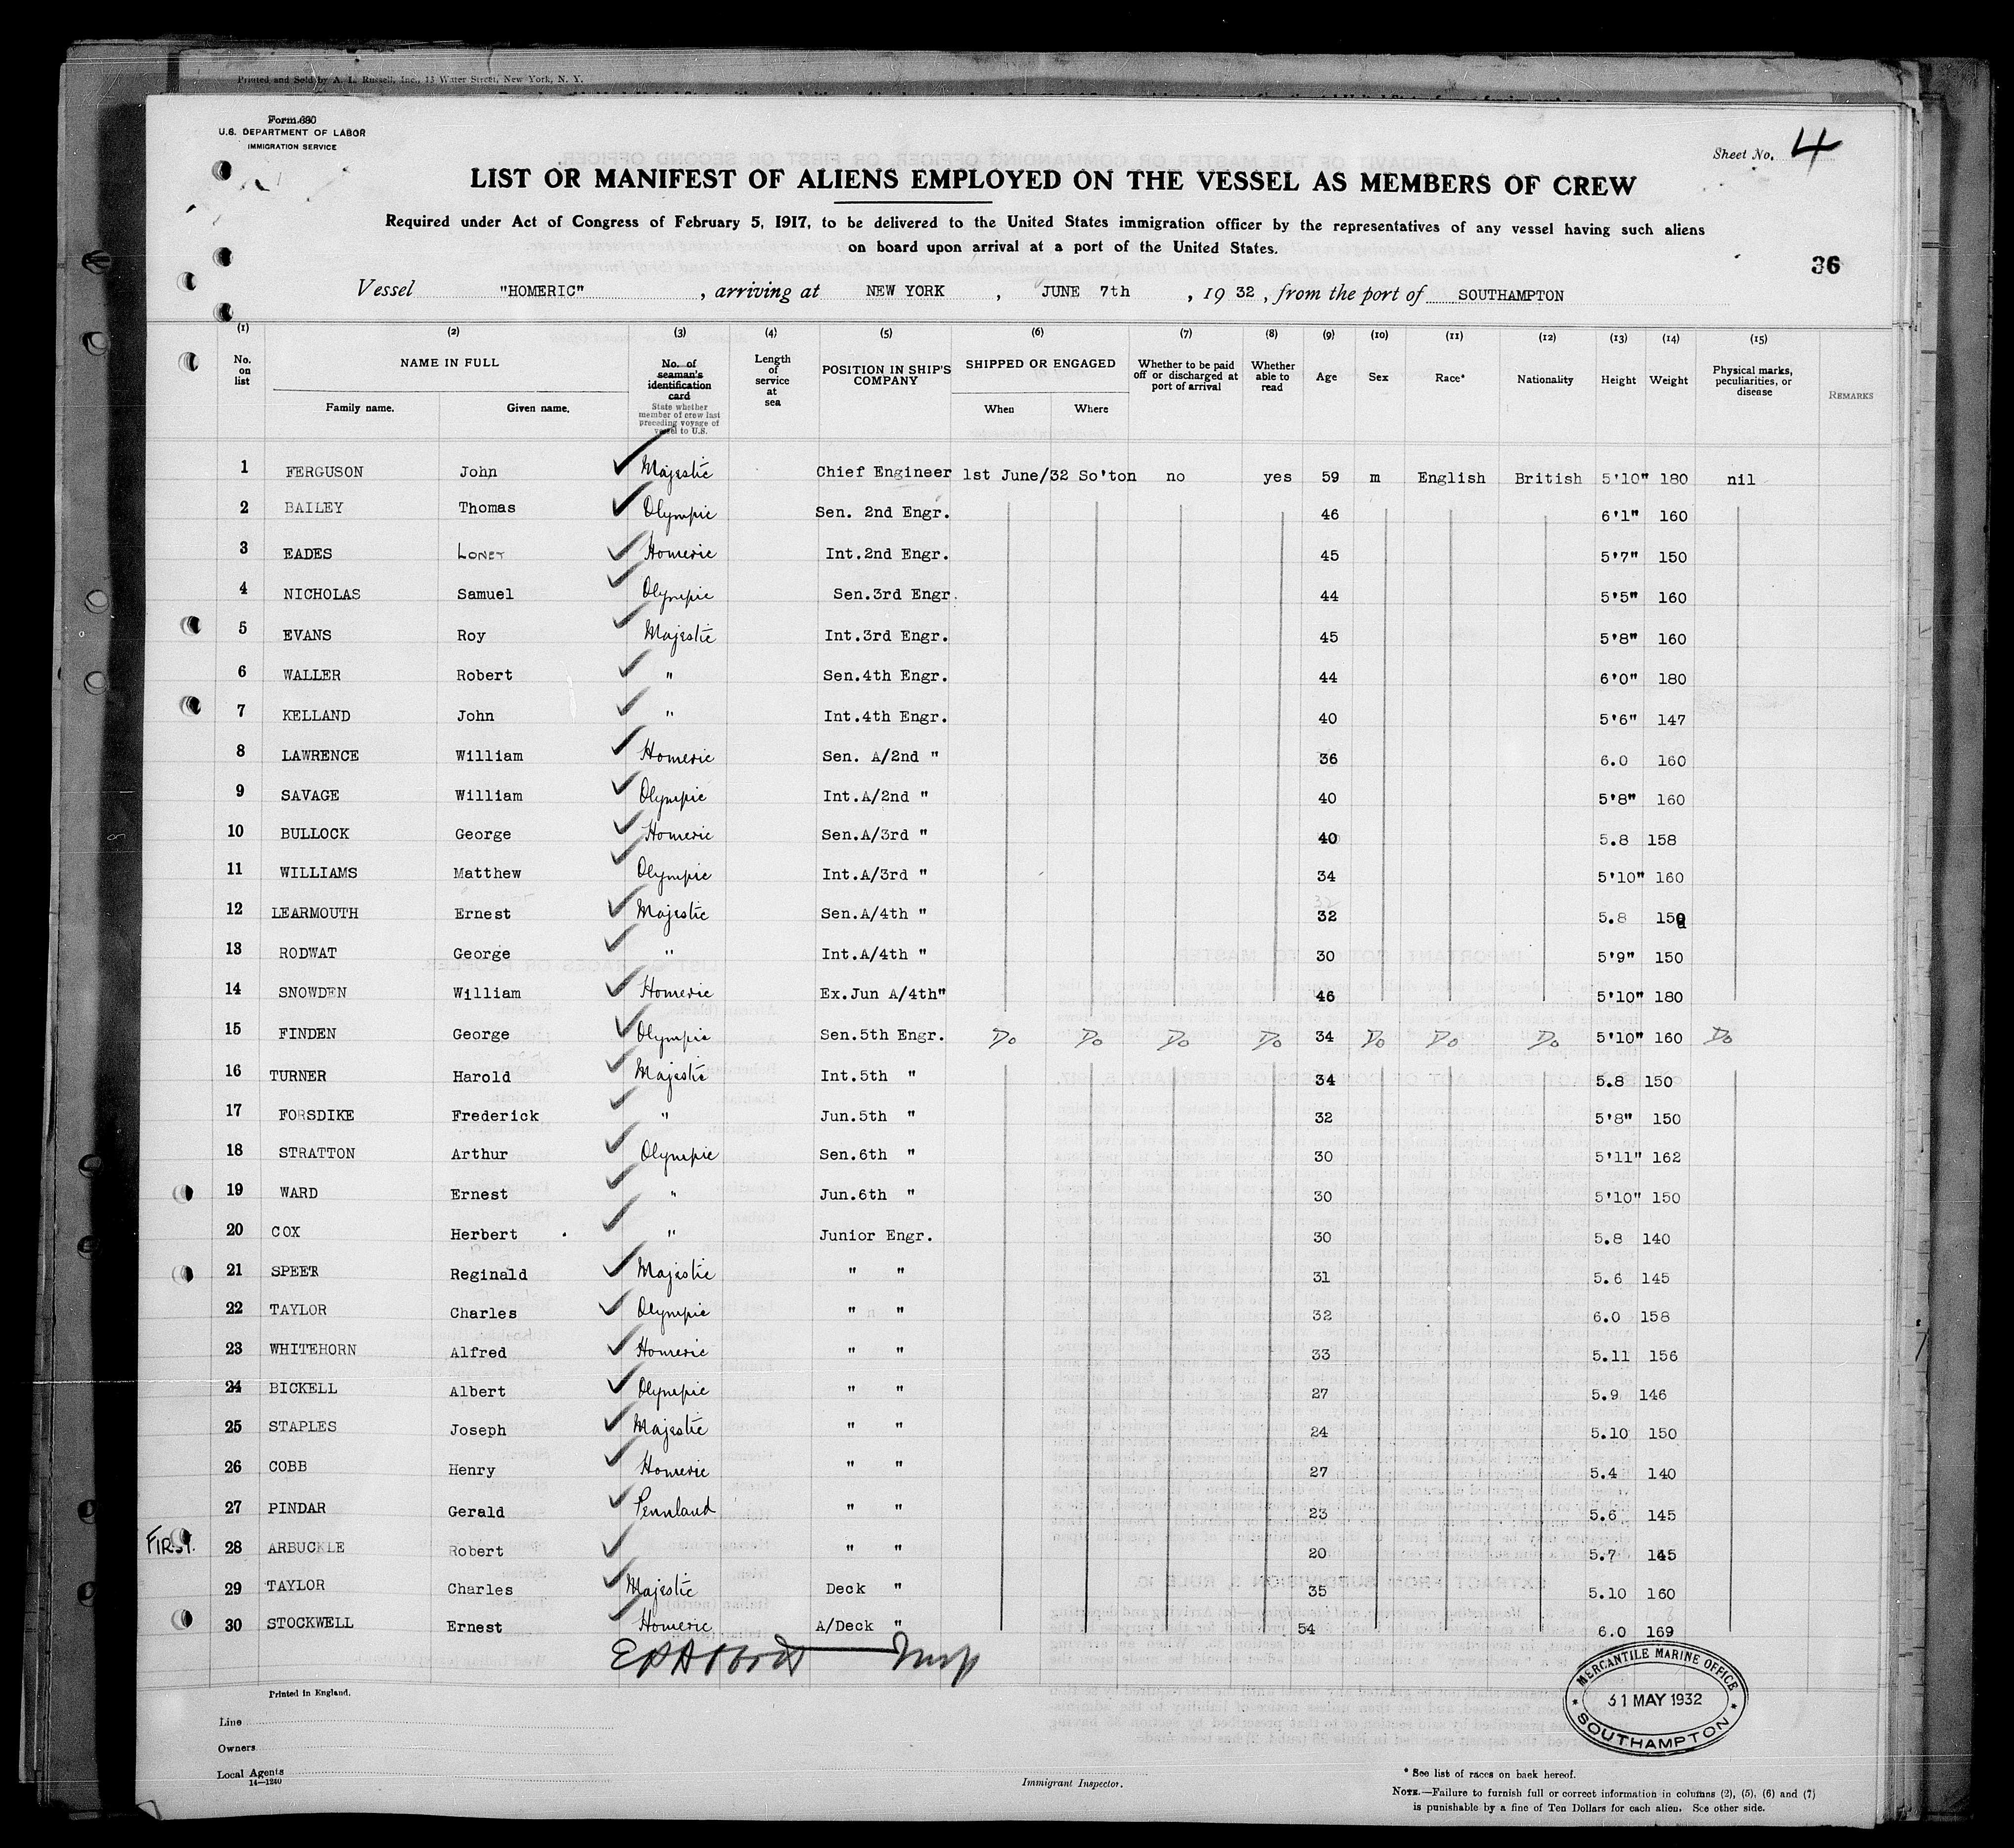 Printed and Sold by A. L. Russell, Inc., 15 Water Street, New York, N. Y.
Form 680
U.S. DEPARTMENT OF LABOR
IMMIGRATION SERVICE
Sheet No. 4
LIST OR MANIFEST OF ALIENS EMPLOYED ON THE VESSEL AS MEMBERS OF CREW
Required under Act of Congress of February 5, 1917, to be delivered to the United States immigration officer by the representatives of any vessel having such aliens
on board upon arrival at a port of the United States.
36
Vessel "HOMERIC", arriving at NEW YORK, JUNE 7th, 1932, from the port of SOUTHAMPTON
(1) (2) (3) (4) (5) (6) (7) (8) (9) (10) (11) (12) (13) (14) (15)
No. on list
NAME IN FULL
Family name. Given name.
No. of seaman's identification card
State whether member of crew last preceding voyage of vessel to U.S.
Length of service at sea
POSITION IN SHIP'S COMPANY
SHIPPED OR ENGAGED
When Where
Whether to be paid off or discharged at port of arrival
Whether able to read
Age Sex Race* Nationality Height Weight
Physical marks, peculiarities, or disease
REMARKS
1 FERGUSON John Majestic Chief Engineer 1st June/32 So'ton no yes 59 m English British 5'10" 180 nil
2 BAILEY Thomas Olympic Sen. 2nd Engr. 46 6'1" 160
3 EADES Homeric Int.2nd Engr. 45 5'7" 150
4 NICHOLAS Samuel Olympic Sen.3rd Engr. 44 5'5" 160
5 EVANS Roy Majestic Int.3rd Engr. 45 5'8" 160
6 WALLER Robert " Sen.4th Engr. 44 6'0" 180
7 KELLAND John " Int.4th Engr. 40 5'6" 147
8 LAWRENCE William Homeric Sen. A/2nd " 36 6.0 160
9 SAVAGE William Olympic Int.A/2nd " 40 5'8" 160
10 BULLOCK George Homeric Sen.A/3rd " 40 5.8 158
11 WILLIAMS Matthew Olympic Int.A/3rd " 34 5'10" 160
12 LEARMOUTH Ernest Majestic Sen.A/4th " 32 5.8 150
13 RODWAT George " Int.A/4th " 30 5'9" 150
14 SNOWDEN William Homeric Ex.Jun A/4th" 46 5'10" 180
15 FINDEN George Olympic Sen.5th Engr. Do Do Do Do 34 Do Do Do 5'10" 160 Do
16 TURNER Harold Majestic Int.5th " 34 5.8 150
17 FORSDIKE Frederick " Jun.5th " 32 5'8" 150
18 STRATTON Arthur Olympic Sen.6th " 30 5'11" 162
19 WARD Ernest " Jun.6th " 30 5'10" 150
20 COX Herbert " Junior Engr. 30 5.8 140
21 SPEER Reginald Majestic " " 31 5.6 145
22 TAYLOR Charles Olympic " " 32 6.0 158
23 WHITEHORN Alfred Homeric " " 33 5.11 156
24 BICKELL Albert Olympic " " 27 5.9 146
25 STAPLES Joseph Majestic " " 24 5.10 150
26 COBB Henry Homeric " " 27 5.4 140
27 PINDAR Gerald Pennland " " 23 5.6 145
FIRST. 28 ARBUCKLE Robert " " 20 5.7 145
29 TAYLOR Charles Majestic Deck " 35 5.10 160
30 STOCKWELL Ernest Homeric A/Deck " 54 6.0 169
MERCANTILE MARINE OFFICE
31 MAY 1932
SOUTHAMPTON
Printed in England.
Line
Owners
Local Agents
14—1240
Immigrant Inspector.
* See list of races on back hereof.
NOTE.—Failure to furnish full or correct information in columns (2), (5), (6) and (7)
is punishable by a fine of Ten Dollars for each alien. See other side.